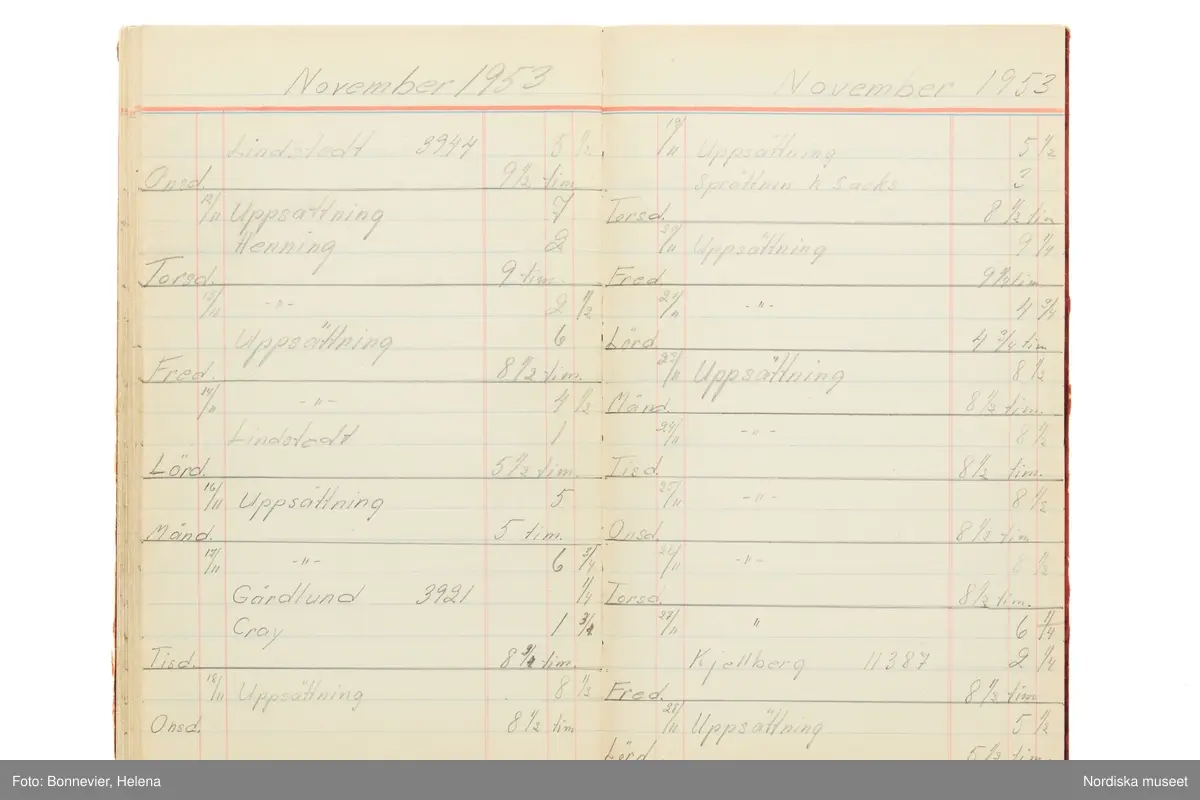 November 1953
Lindstedt 3944 5 1/2
Onsd. 9 1/2 tim
12/11 Uppsättning 7
Henning 2
Torsd. 9 tim.
13/11 -"- 2 1/2
Uppsättning 6
Fred. 8 1/2 tim.
14/11 -"- 4 1/2
Lindstedt 1
Lörd. 5 1/2 tim.
16/11 Uppsättning 5
Månd. 5 tim.
17/11 -"- 6 3/4
Gårdlund 3921 1/4
Cray 1 3/4
Tisd. 8 3/4 tim.
18/11 Uppsättning 8 1/2
Onsd. 8 1/2 tim
November 1953
19/11 Uppsättning 5 1/2
Sprättnin k Sacks 3
Torsd. 8 1/2 tim
20/11 Uppsättning 9 1/4
Fred. 9 1/2 tim
21/11 -"- 4 3/4
Lörd. 4 3/4 tim
23/11 Uppsättning 8 1/2
Månd. 8 1/2 tim.
24/11 -"- 8 1/2
Tisd. 8 1/2 tim.
25/11 -"- 8 1/2
Onsd. 8 1/2 tim
26/11 -"- 8 1/2
Torsd. 8 1/2 tim.
27/11 " 6 1/4
Kjellberg 11387 2 1/4
Fred. 8 1/2 tim
28/11 Uppsättning 5 1/2
Lörd 5 1/2 tim.
Foto: Bonnevier, Helena
Nordiska museet